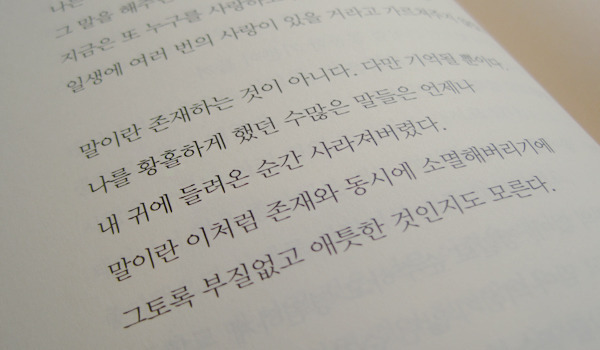 나는
그 말을 해주던
지금은 또 누구를 사랑하고
일생에 여러 번의 사랑이 있을 거라고 가르쳐주지
말이란 존재하는 것이 아니다. 다만 기억될 뿐이다.
나를 황홀하게 했던 수많은 말들은 언제나
내 귀에 들려온 순간 사라져버렸다.
말이란 이처럼 존재와 동시에 소멸해버리기에
그토록 부질없고 애틋한 것인지도 모른다.